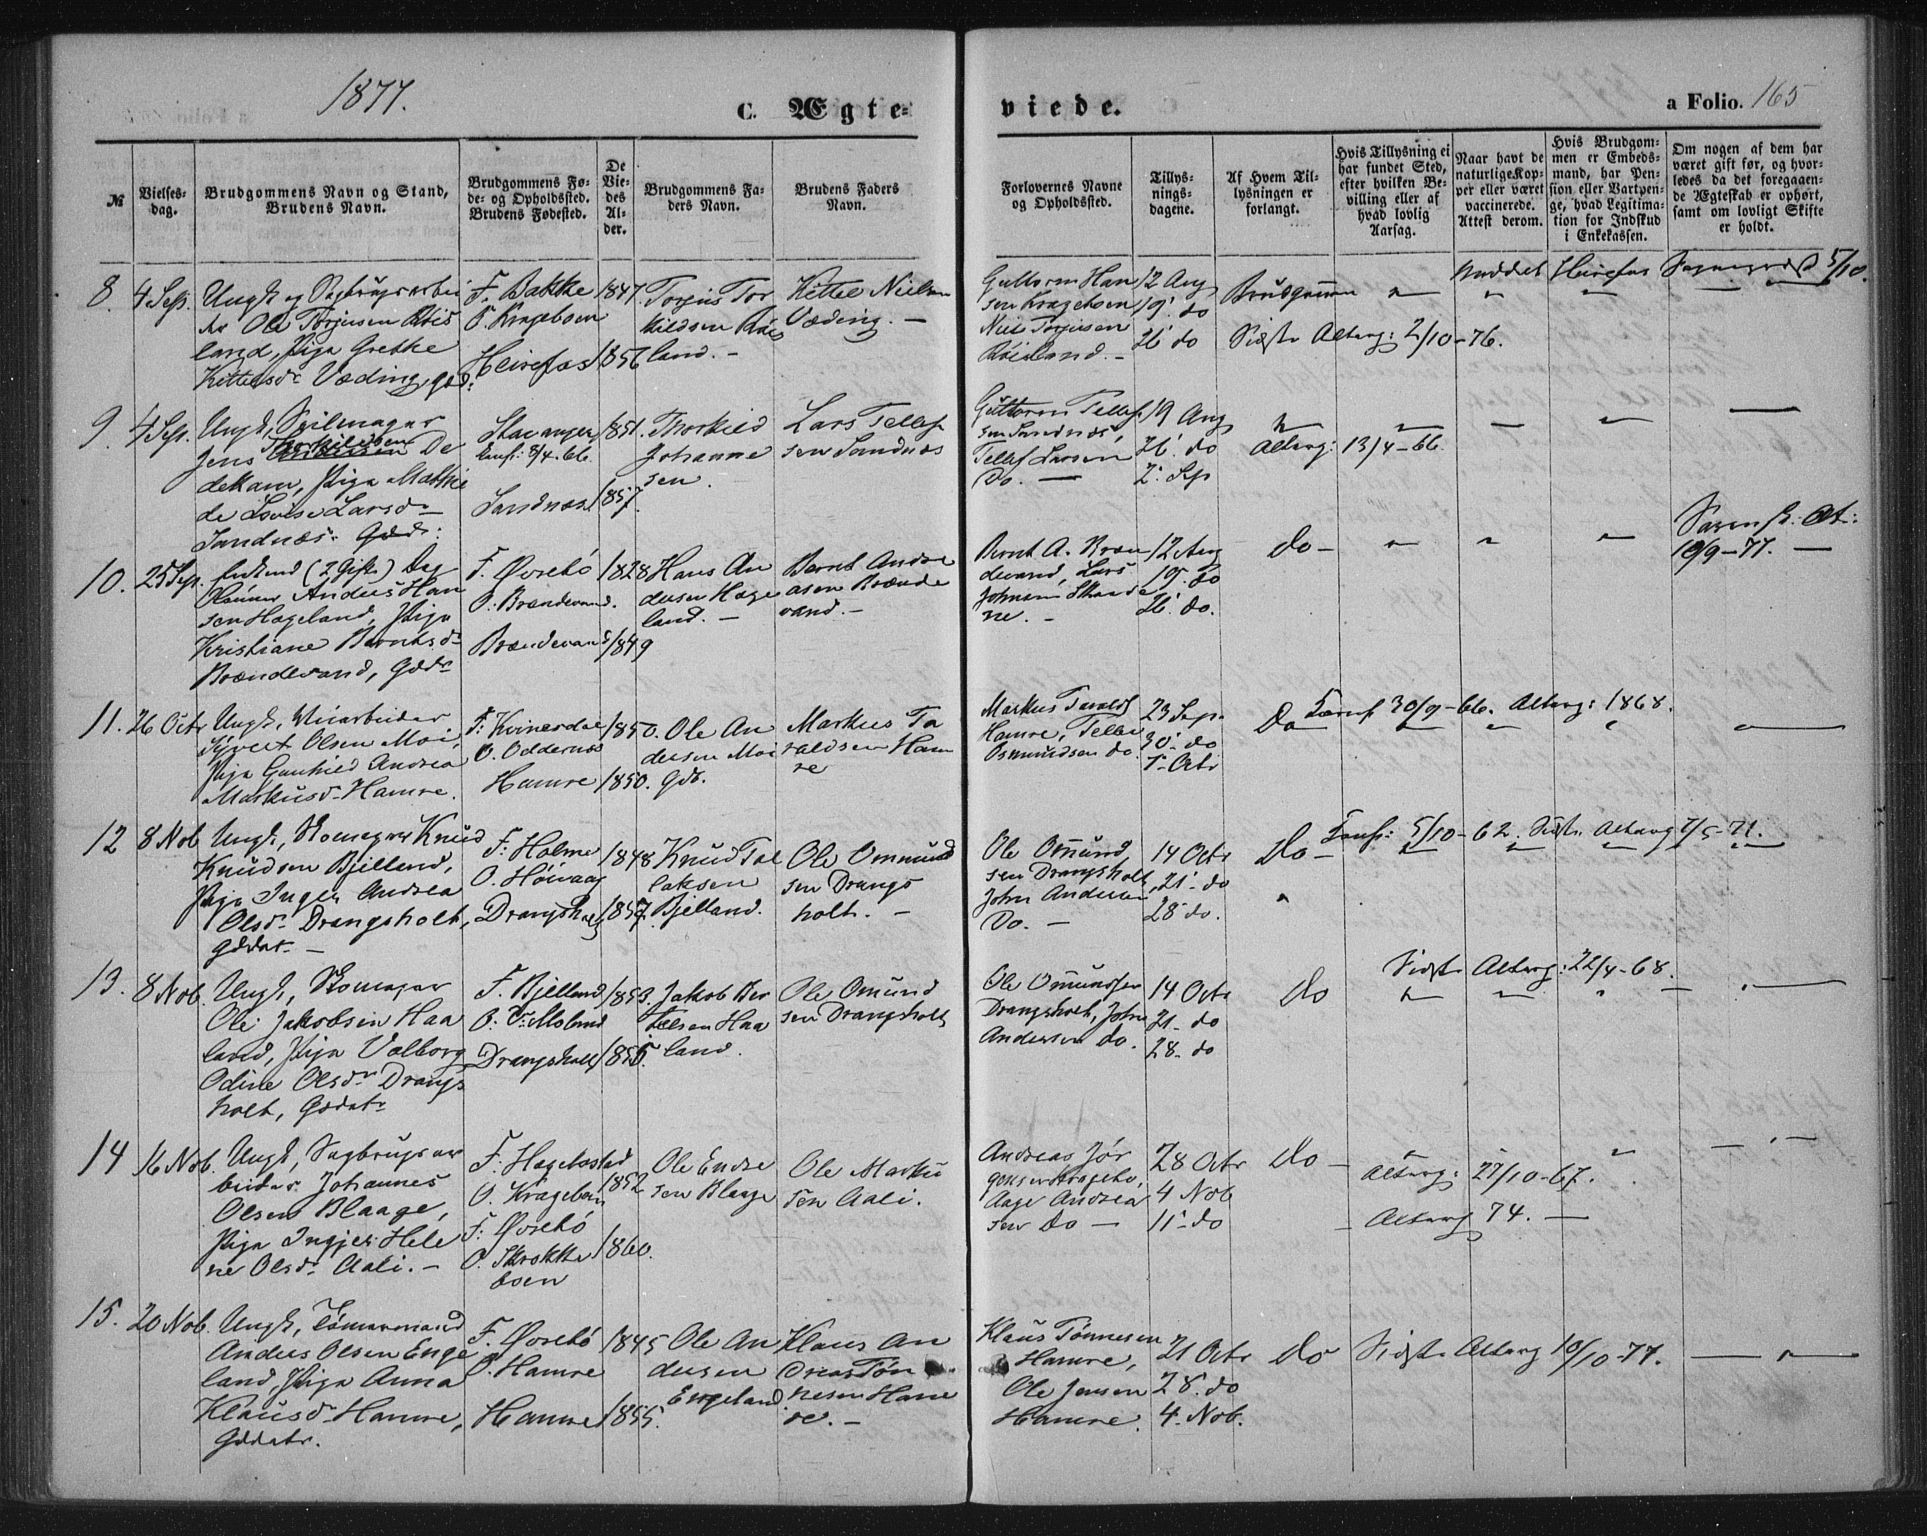 1877.
C. Ægte-
viede.
a Folio. 165
№
Vielses-
dag.
Brudgommens Navn og Stand,
Brudens Navn.
Brudgommens Fø-
de- og Opholdssted.
Brudens Fødested.
De
Vie-
des
Al-
der.
Brudgommens Fa-
ders Navn.
Brudens Faders
Navn.
Forlovernes Navne
og Opholdssted.
Tillys-
nings-
dagene.
Af Hvem Til-
lysningen er
forlangt.
Hvis Tillysning ei
har fundet Sted,
efter hvilken Be-
villing eller af
hvad lovlig
Aarsag.
Naar havt de
naturlige Kop-
per eller været
vaccinerede.
Attest derom.
Hvis Brudgom-
men er Embeds-
mand, har Pen-
sion eller Vartpen-
ge, hvad Legitima-
tion for Indskud
i Enkekassen.
Om nogen af dem har
været gift før, og hvor-
ledes da det foregaaen-
de Ægteskab er ophørt,
samt om lovligt Skifte
er holdt.
8. 4 Sep.
Ungk og Sagbrugsarbei
der Ole Torjusen Røis
land, Pige Grethe
Kittelsdr Væding, Gdd:
F. Bakke
O. Krageboen
Heirefos
1847
1856
Torjus Tor
kildsen Røis
land. -
Kittel Nielsen
Væding. -
Guttorm Han
sen Krageboen
Niels Torjusen
Røisland. -
12 Aug
19. do
26 do
Brudgommen
Sidste Alterg: 2/10 - 76.
5/10.
9. 4 Sep.
Ungk, Seilmager
Jens Thorkildsen De
dekam, Pige Mathil
de Lovise Larsdr
Sandnæs. Gddr:
Stavanger
Conf: 8/4. 66.
Sandnæs
1851.
1857.
Thorkild
Johanne
sen.
Lars Tellef
sen Sandnæs
Guttorm Tellef
sen Sandnæs,
Tellef Larsen
Do. -
19 Aug
26. do
2. Sep
Alterg: 13/4 - 66.
10. 25 Sep.
Enkemd (2 Gift) Dag
lönner Anders Han
sen Hageland, Pige
Kristiane Berntsdr
Brændevand, Gddr
F. Øvrebø
O. Brændevand.
Brændevand
1828
1849
Hans An
dersen Hage
land. -
Bernt Andre
asen Brænde
vand. -
Bernt A. Bræn
devand, Lars
Johnsen Skaade
ne. -
12 Aug
19. do
26. do.
do -
Skifteatt:
10/9 - 77. -
11. 26 Octr
Ungk, Veiarbeider
Syvert Olsen Moi,
Pige Gunhild Andrea
Markusdr Hamre.
F: Kvinesdal
O. Oddernæs
Hamre
1850.
1850.
Ole An
dersen Moi
Gdb.
Markus Ta
raldsen Ham
re
Markus Taralds
Hamre, Tellef
Osmundsen do.
23 Sep.
30. do
7. Octr
Do
Conf 30/9 - 66. Alterg: 1868.
12 8 Nob
Ungk, Skomager Knud
Knudsen Bjelland,
Pige Inger Andrea
Olsdr Drangsholt,
Gddatr -
F: Holme
O. Høivaag
Drangsholt
1848
1857
Knud Tol
laksen
Bjelland.
Ole Ommund
sen Drangs
holt. -
Ole Omund
sen Drangsholt,
John Andersen
Do. -
14 Octr
21. do
28 do.
Do -
Conf: 5/10 - 62. Sidste Alterg 7/5 - 71.
13. 8 Nob.
Ungk, Skomager
Ole Jakobsen Haa
land, Pige Valborg
Odine Olsdr Drangs
holt, Gddatr
F. Bjelland
O. V. Moland
Drangsholt
1853.
1855.
Jakob Ber
telsen Haa
land.
Ole Omund
sen Drangsholt
Ole Omundsen
Drangsholt, John
Andersen do.
14 Octr
21. do
28. do
Do
Sidste Alterg: 22/4 - 68.
14 16 Nob.
Ungk, Sagbrugsar
beider Johannes
Olsen Blaage,
Pige Ingjer Hele
ne Olsdr Aali. -
F. Hægebostad
O. Krageboen
F: Øvrebø
O. Skrakke
boen
1852
1860.
Ole Endre
sen Blaage
Ole Marku
sen Aali.
Andreas Jør
gensen Kragebo,
Aage Andrea
sen Do -
28 Octr
4 Nob
11. do
Do -
Alterg: 27/10 - 67.
- Alterg 74. -
15. 20 Nob.
Ungk, Tömmermand
Anders Olsen Enge
land, Pige Anna
Klausdr Hamre,
Gddatr.
F. Øvrebø
O. Hamre
Hamre
1845
1855.
Ole An
dersen
Engeland.
Klaus An
dreas Tøn
nesen Ham
re. -
Klaus Tønnesen
Hamre,
Ole Jensen
Hamre.
21 Octr
28. do
4. Nob.
do
Sidste Alterg 10/10 - 77.